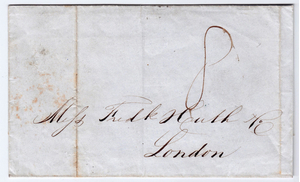 8
Mess Fredk Huth &c
London